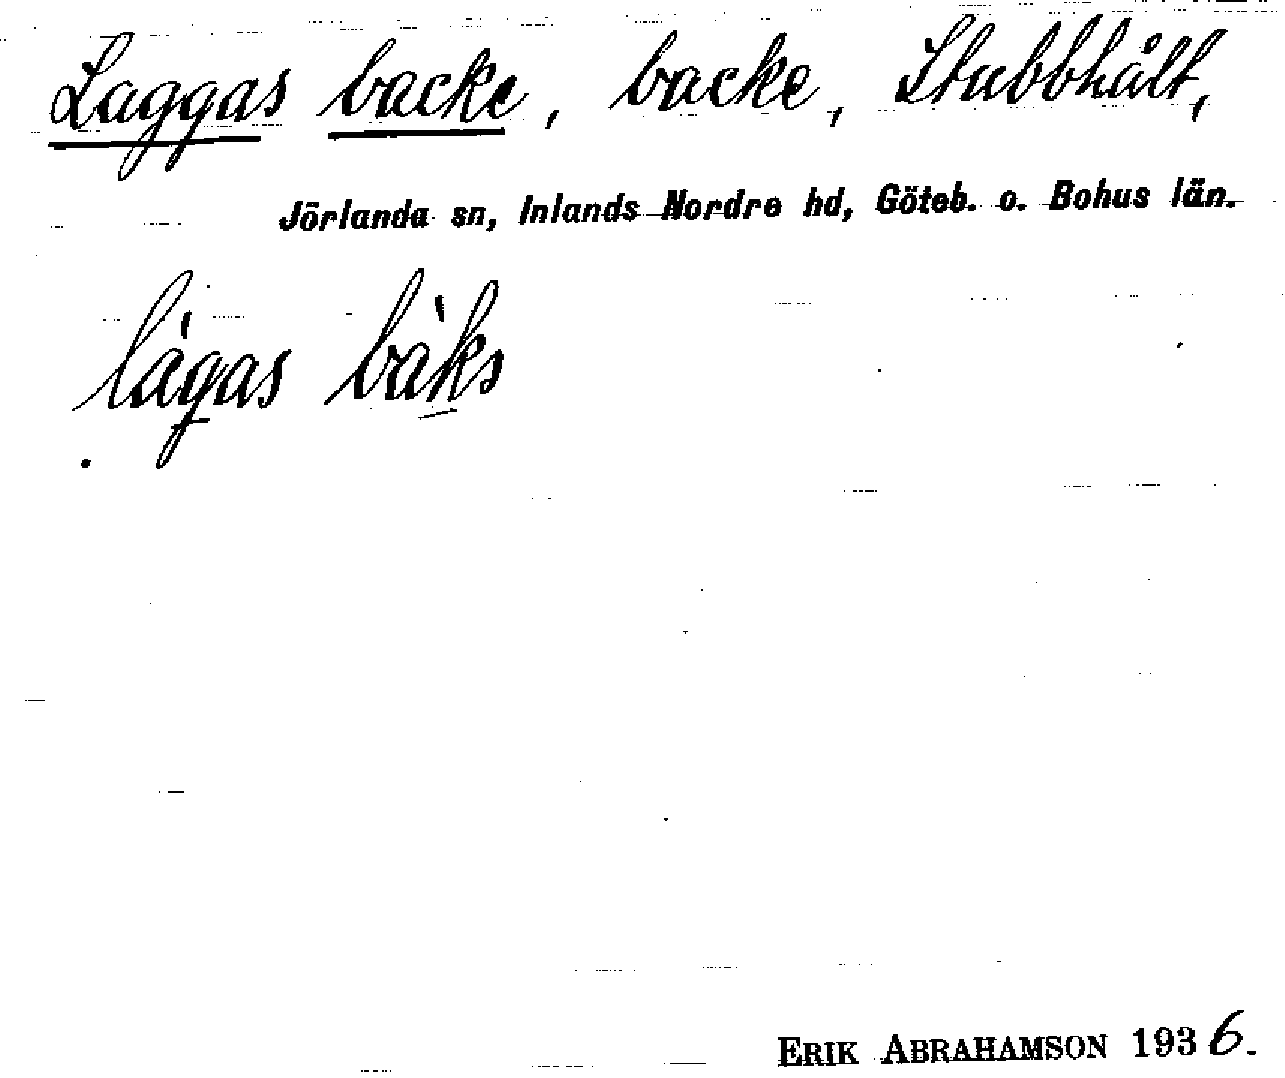 Laggas backe, backe, Stubbhält,
Jörlanda sn, Inlands Nordre hd, Göteb. o. Bohus län.
lágas bàks
ERIK ABRAHAMSON 1936.